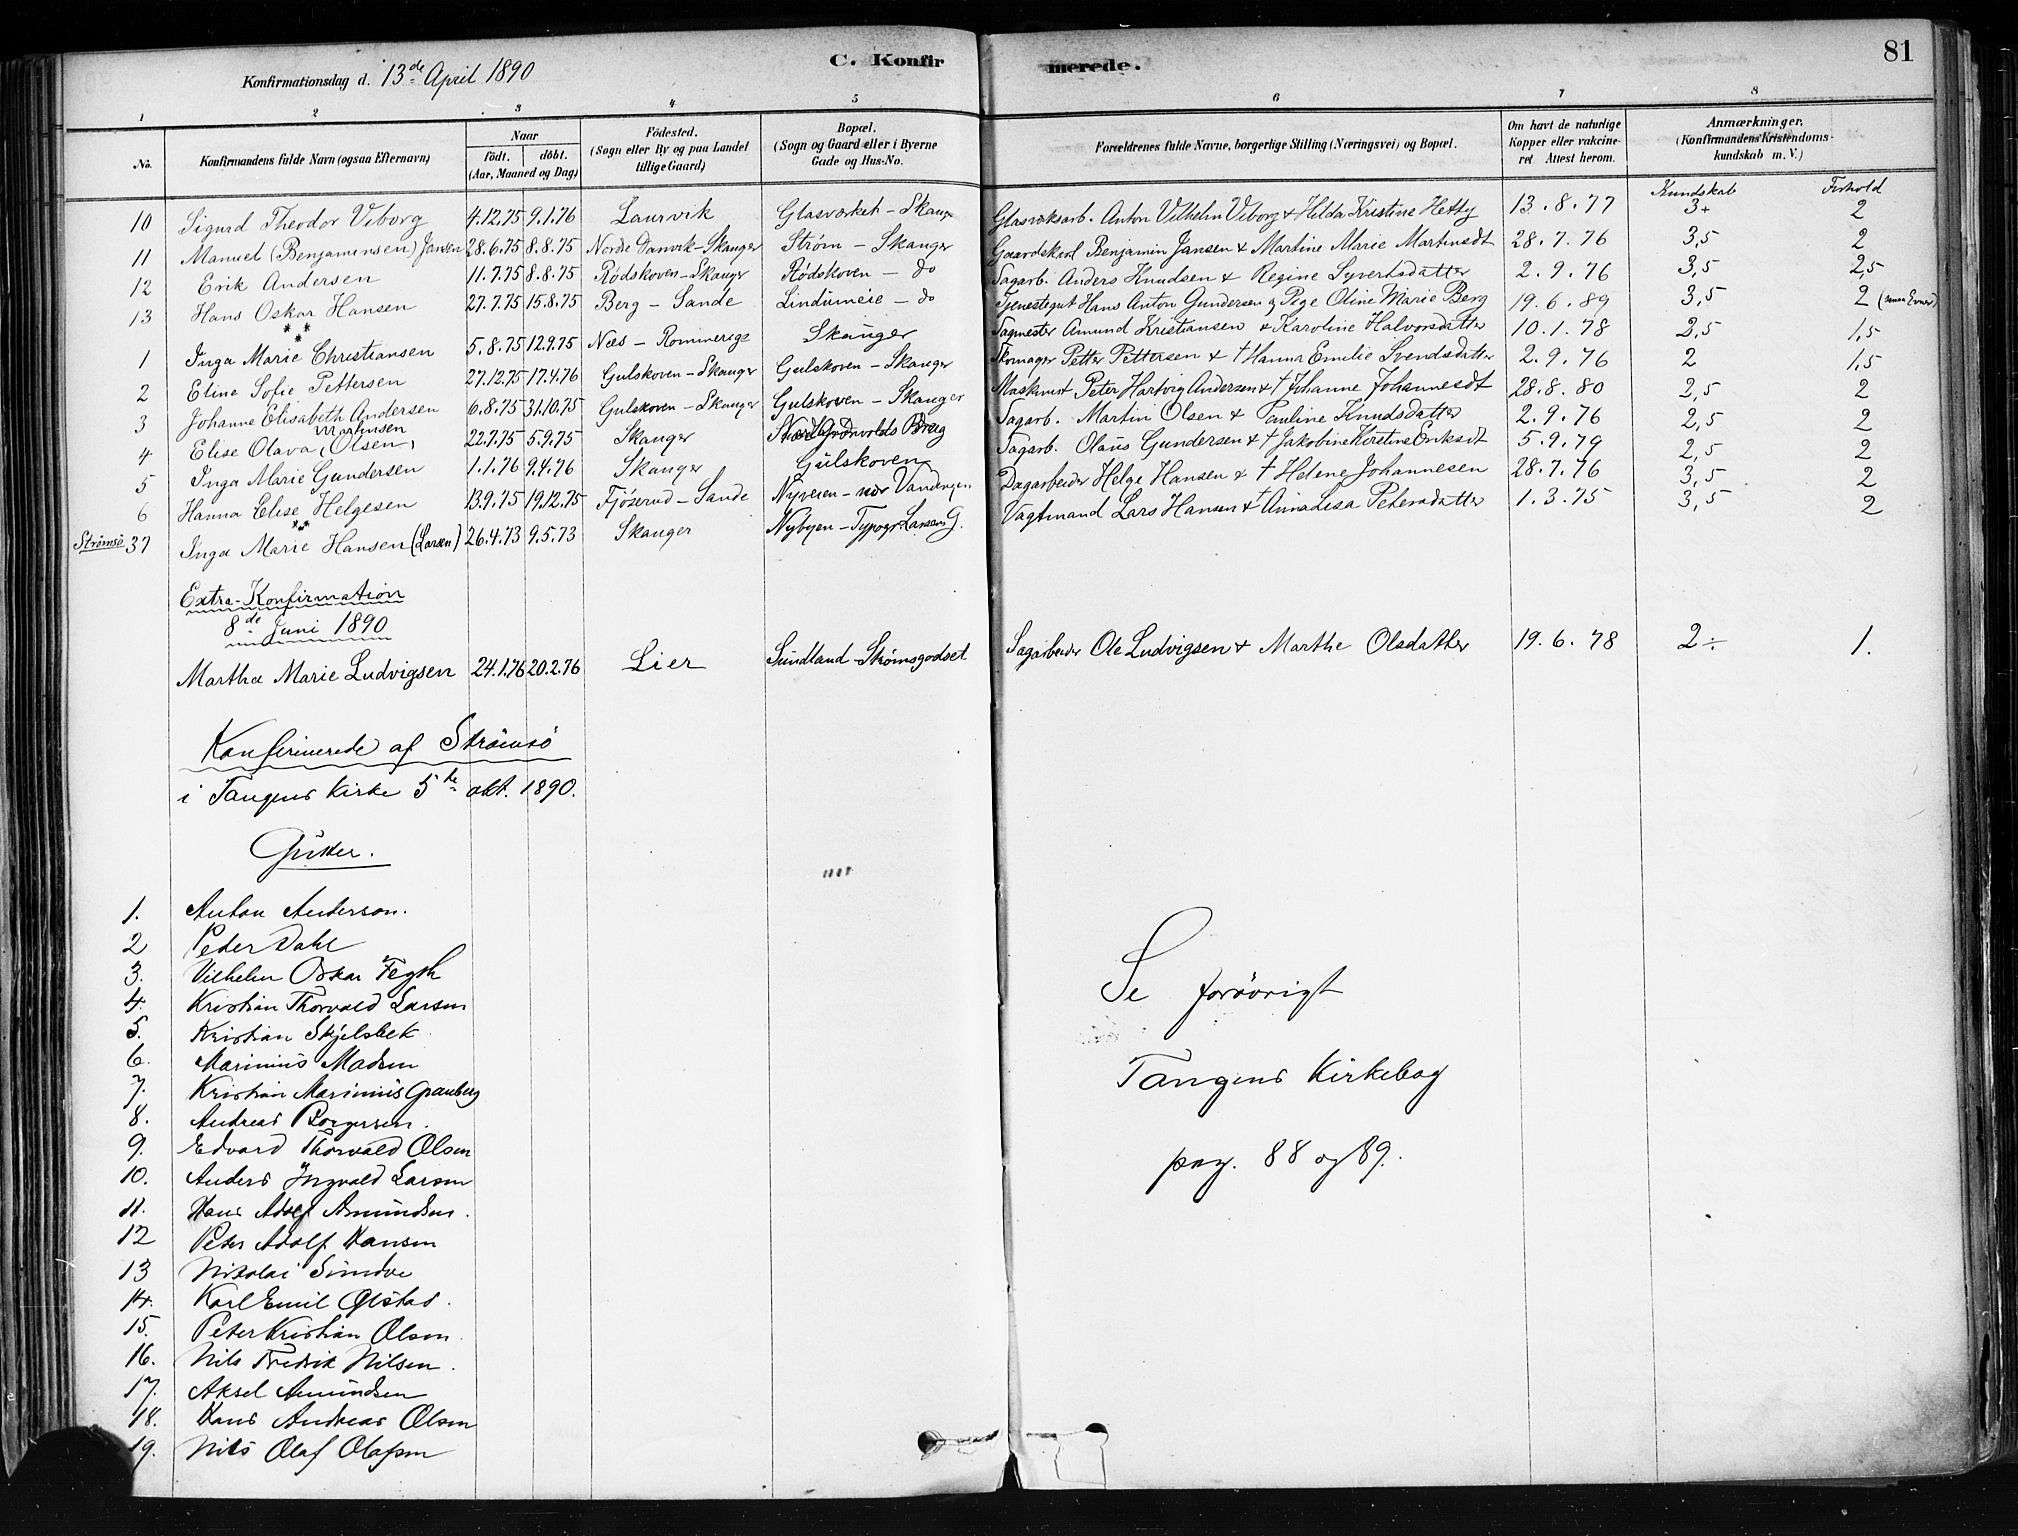 Konfirmationsdag d. 13de April 1890
C. Konfirmerede.
81
1 2 3 4 5 6 7 8
No. Konfirmandens fulde Navn (ogsaa Efternavn) Naar födt. döbt. (Aar, Maaned og Dag) Födested. (Sogn eller By og paa Landet tillige Gaard) Bopæl. (Sogn og Gaard eller i Byerne Gade og Hus-No. Forældrenes fulde Navne, borgerlige Stilling (Næringsvei) og Bopæl. Om havt de naturlige Kopper eller vakcineret Attest herom. Anmærkninger. (Konfirmandens Kristendomskundskab m. V.)
Kundskab Forhold
10 Sigurd Theodor Viborg 4.12.75 9.1.76 Laurvik Glasværket - Skauger Glasværksarb. Anton Vilhelm Viborg & Hilda Kristine Hetty 13.8.77 3+ 2
11 Manuel (Benjaminsen) Jansen 28.6.75 8.8.75 Nordre Danvik - Skauger Strøm - Skauger Gaardskarl Benjamin Jansen & Martine Marie Martinsdt 28.7.76 3,5 2
12 Erik Andersen 11.7.75 8.8.75 Rødskoven - Skauger Rødskoven - do Sagarb. Anders Knudsen & Regine Syvertsdatter 2.9.76 3,5 2,5
13 Hans Oskar Hansen 27.7.75 15.8.75 Berg - Sande Lindumeie - do Tjenestegut Hans Anton Gundersen og Pige Oline Marie Berg 19.6.89 3,5 2
1 Inga Marie Christiansen 5.8.75 12.9.75 Næs - Rommerige Skauger Sagmester Amund Kristiansen & Karoline Halvorsdatter 10.1.78 2,5 1,5
2 Eline Sofie Pettersen 27.12.75 17.4.76 Gulskoven - Skauger Gulskoven - Skauger Skomager Petter Pettersen & † Hanna Emilie Svendsdatter 2.9.76 2 1,5
3 Johanne Elisabeth Andersen 6.8.75 31.10.75 Gulskoven - Skauger Gulskoven - Skauger Maskinist Peter Hartvig Andersen & † Johanne Johannesdt 28.8.80 2,5 2
4 Elise Olava (Olsen) Martinsen 22.7.75 5.9.75 Skauger Sagarb. Martin Olsen & Pauline Knudsdatter 2.9.76 2,5 2
5 Inga Marie Gundersen 1.1.76 9.4.76 Skauger Gulskoven Sagarb. Olaus Gundersen & † Jakobine Kirstine Eriksdt 5.9.79 2,5 2
6 Hanna Elise Helgesen 13.9.75 19.12.75 Fjøserud - Sande Nyveien - Dagarbeider Helge Hansen & † Helene Johannesen 28.7.76 3,5 2
Strømsö 37 Inga Marie Hansen (Larsen) 26.4.73 9.5.73 Skauger Nybyen - Typogr. Larsens G. Vagtmand Lars Hansen & † Anna Lisa Petersdatter 1.3.75 3,5 2
Extra-Konfirmation
8de Juni 1890
Martha Marie Ludvigsen 24.1.76 20.2.76 Lier Sundland - Strømsgodset Sagarbeider Ole Ludvigsen & Marthe Olsdatter 19.6.78 2÷ 1.
Konfirmerede af Strömsö
i Tangens Kirke 5te okt. 1890.
Gutter.
1. Anton Anderson.
2 Peder Dahl
3. Vilhelm Oskar Fegth
4. Kristian Thorvald Larsen
5. Kristian Skjelsbek
6. Marinius Madsen
7. Kristian Marinius Granberg
8. Andreas Borgersen.
9. Edvard Thorvald Olsen
10. Anders Ingvald Larsen
11. Hans Adolf Amundsen.
12 Peter Adolf Hansen
13 Nikolai Sundve
14. Karl Emil Ølstad.
15. Peter Kristian Olsen
16. Nils Fredrik Nilsen.
17. Aksel Amundsen
18. Hans Andreas Olsen
19. Nils Olaf Olafsen
Se forövrigt
Tangens Kirkebog
pag. 88 og 89.